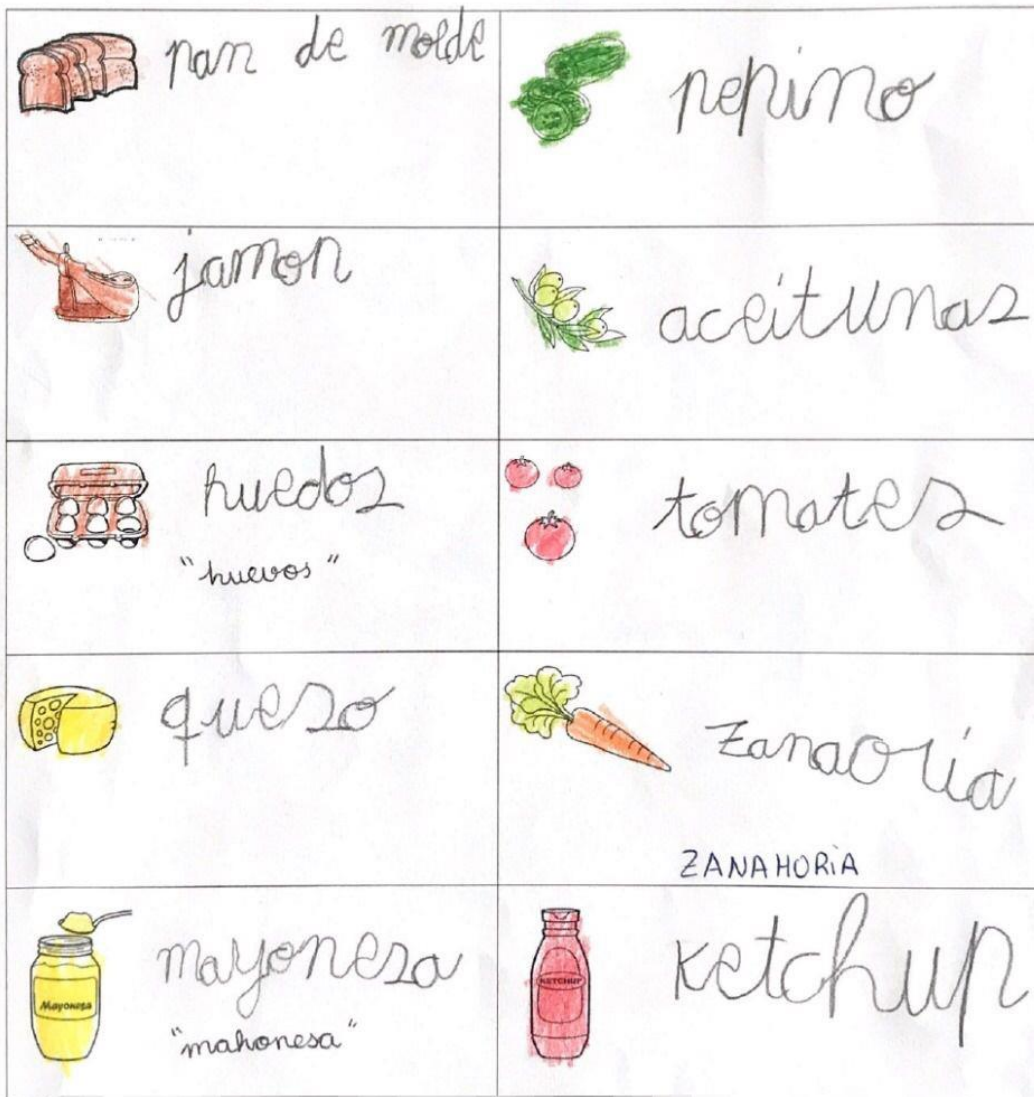 pan de molde
pepino
jamon
aceitunas
huedos
"huevos"
tomates
queso
zanaoria
ZANAHORIA
mayonesa
Mayonesa
"mahonesa"
ketchup
KETCHUP